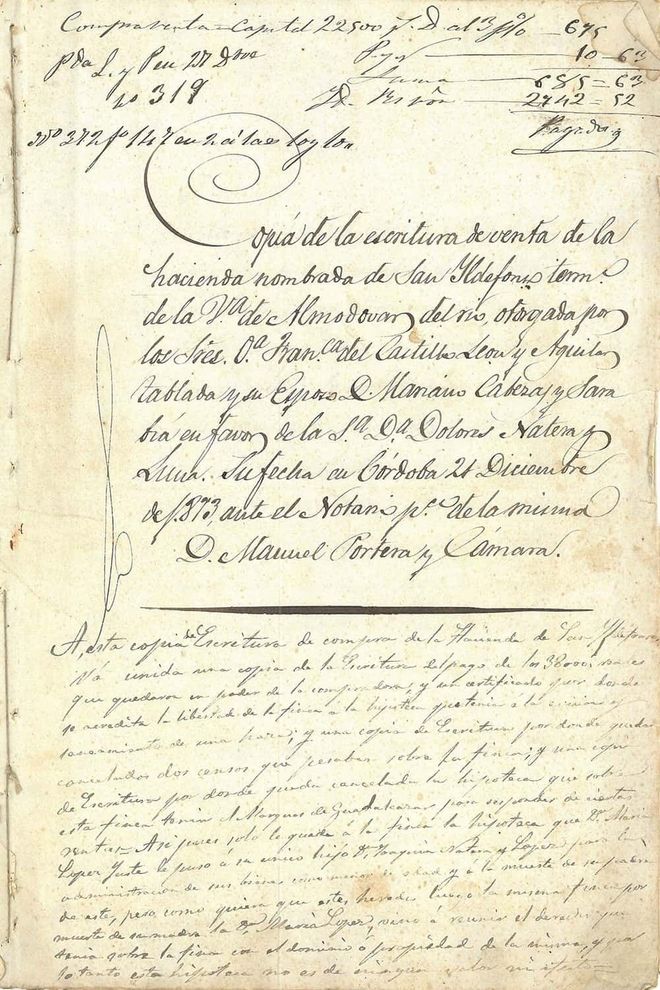 Compraventa = Capital 22500 p. D. al 3 p% — 675
pda L. y Peu 27 Dbre — 10 = 63
nº 319 Suma — 685 = 63
2742 = 52
Nº 372 fº 147 Pagado
Copia de la escritura de venta de la
hacienda nombrada de San Yldefonso term.º
de la V.ª de Almodovar del rio, otorgada por
los Sres. D.ª Fran.ca del Castillo Leon y Aguilar
Tablada y su Esposo D. Mariano Cabezas y Sara
bia en favor de la S.ª D.ª Dolores Natera y
Luna. Su fecha en Córdoba 21 Diciembre
de 1.873, ante el Notario p.º de la misma
D. Manuel Portera y Cámara.
A, esta copia de Escritura de compra de la Hacienda de San Yldefonso
Vá unida una copia de la Escritura del pago de los 38000 reales
que quedaron en poder de la compradora, y un certificado por donde
se acredita la libertad de la finca á la hipoteca que tenia á la
saneamiento de una haza; y una copia de Escritura por donde quedan
cancelados dos censos que pesaban sobre la finca; y una copia
de Escritura por donde queda cancelada la hipoteca que sobre
esta finca tenia el Marques de Guadalcazar para responder de cierta
ventas = Asi pues solo le queda á la finca la hipoteca que D.ª Maria
Lopez Yuste le puso á su único hijo D. Joaquin Natera y Lopez por la
administracion de sus bienes como menor de edad y á la muerte de su padre
de este, pero como quiera que este, heredó luego la misma finca por
muerte de su madre la D.ª Maria Lopez, vino á reunir el derecho que
tenia sobre la finca con el dominio ó propiedad de la misma, y por
lo tanto esta hipoteca no es de ningun valor ni efecto =